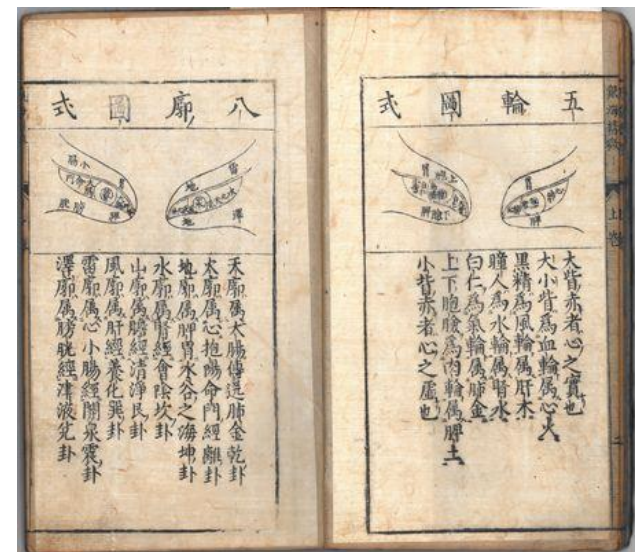 五輪圖式
大眥赤者心之實也
大小眥為血輪属心火
黒精為風輪属肝木
瞳人為水輪属腎水
白仁為氣輪属肺金
上下胞瞼為肉輪属脾土
小眥赤者心之虛也
上卷
二
八廓圖式
天廓属大腸傳送肺金乾卦
火廓属心抱陽命門經離卦
地廓属脾胃水谷之海坤卦
水廓属腎經會陰坎卦
山廓属膽經清淨艮卦
風廓属肝經養化巽卦
雷廓属心小腸經關泉震卦
澤廓属膀胱經津液兌卦